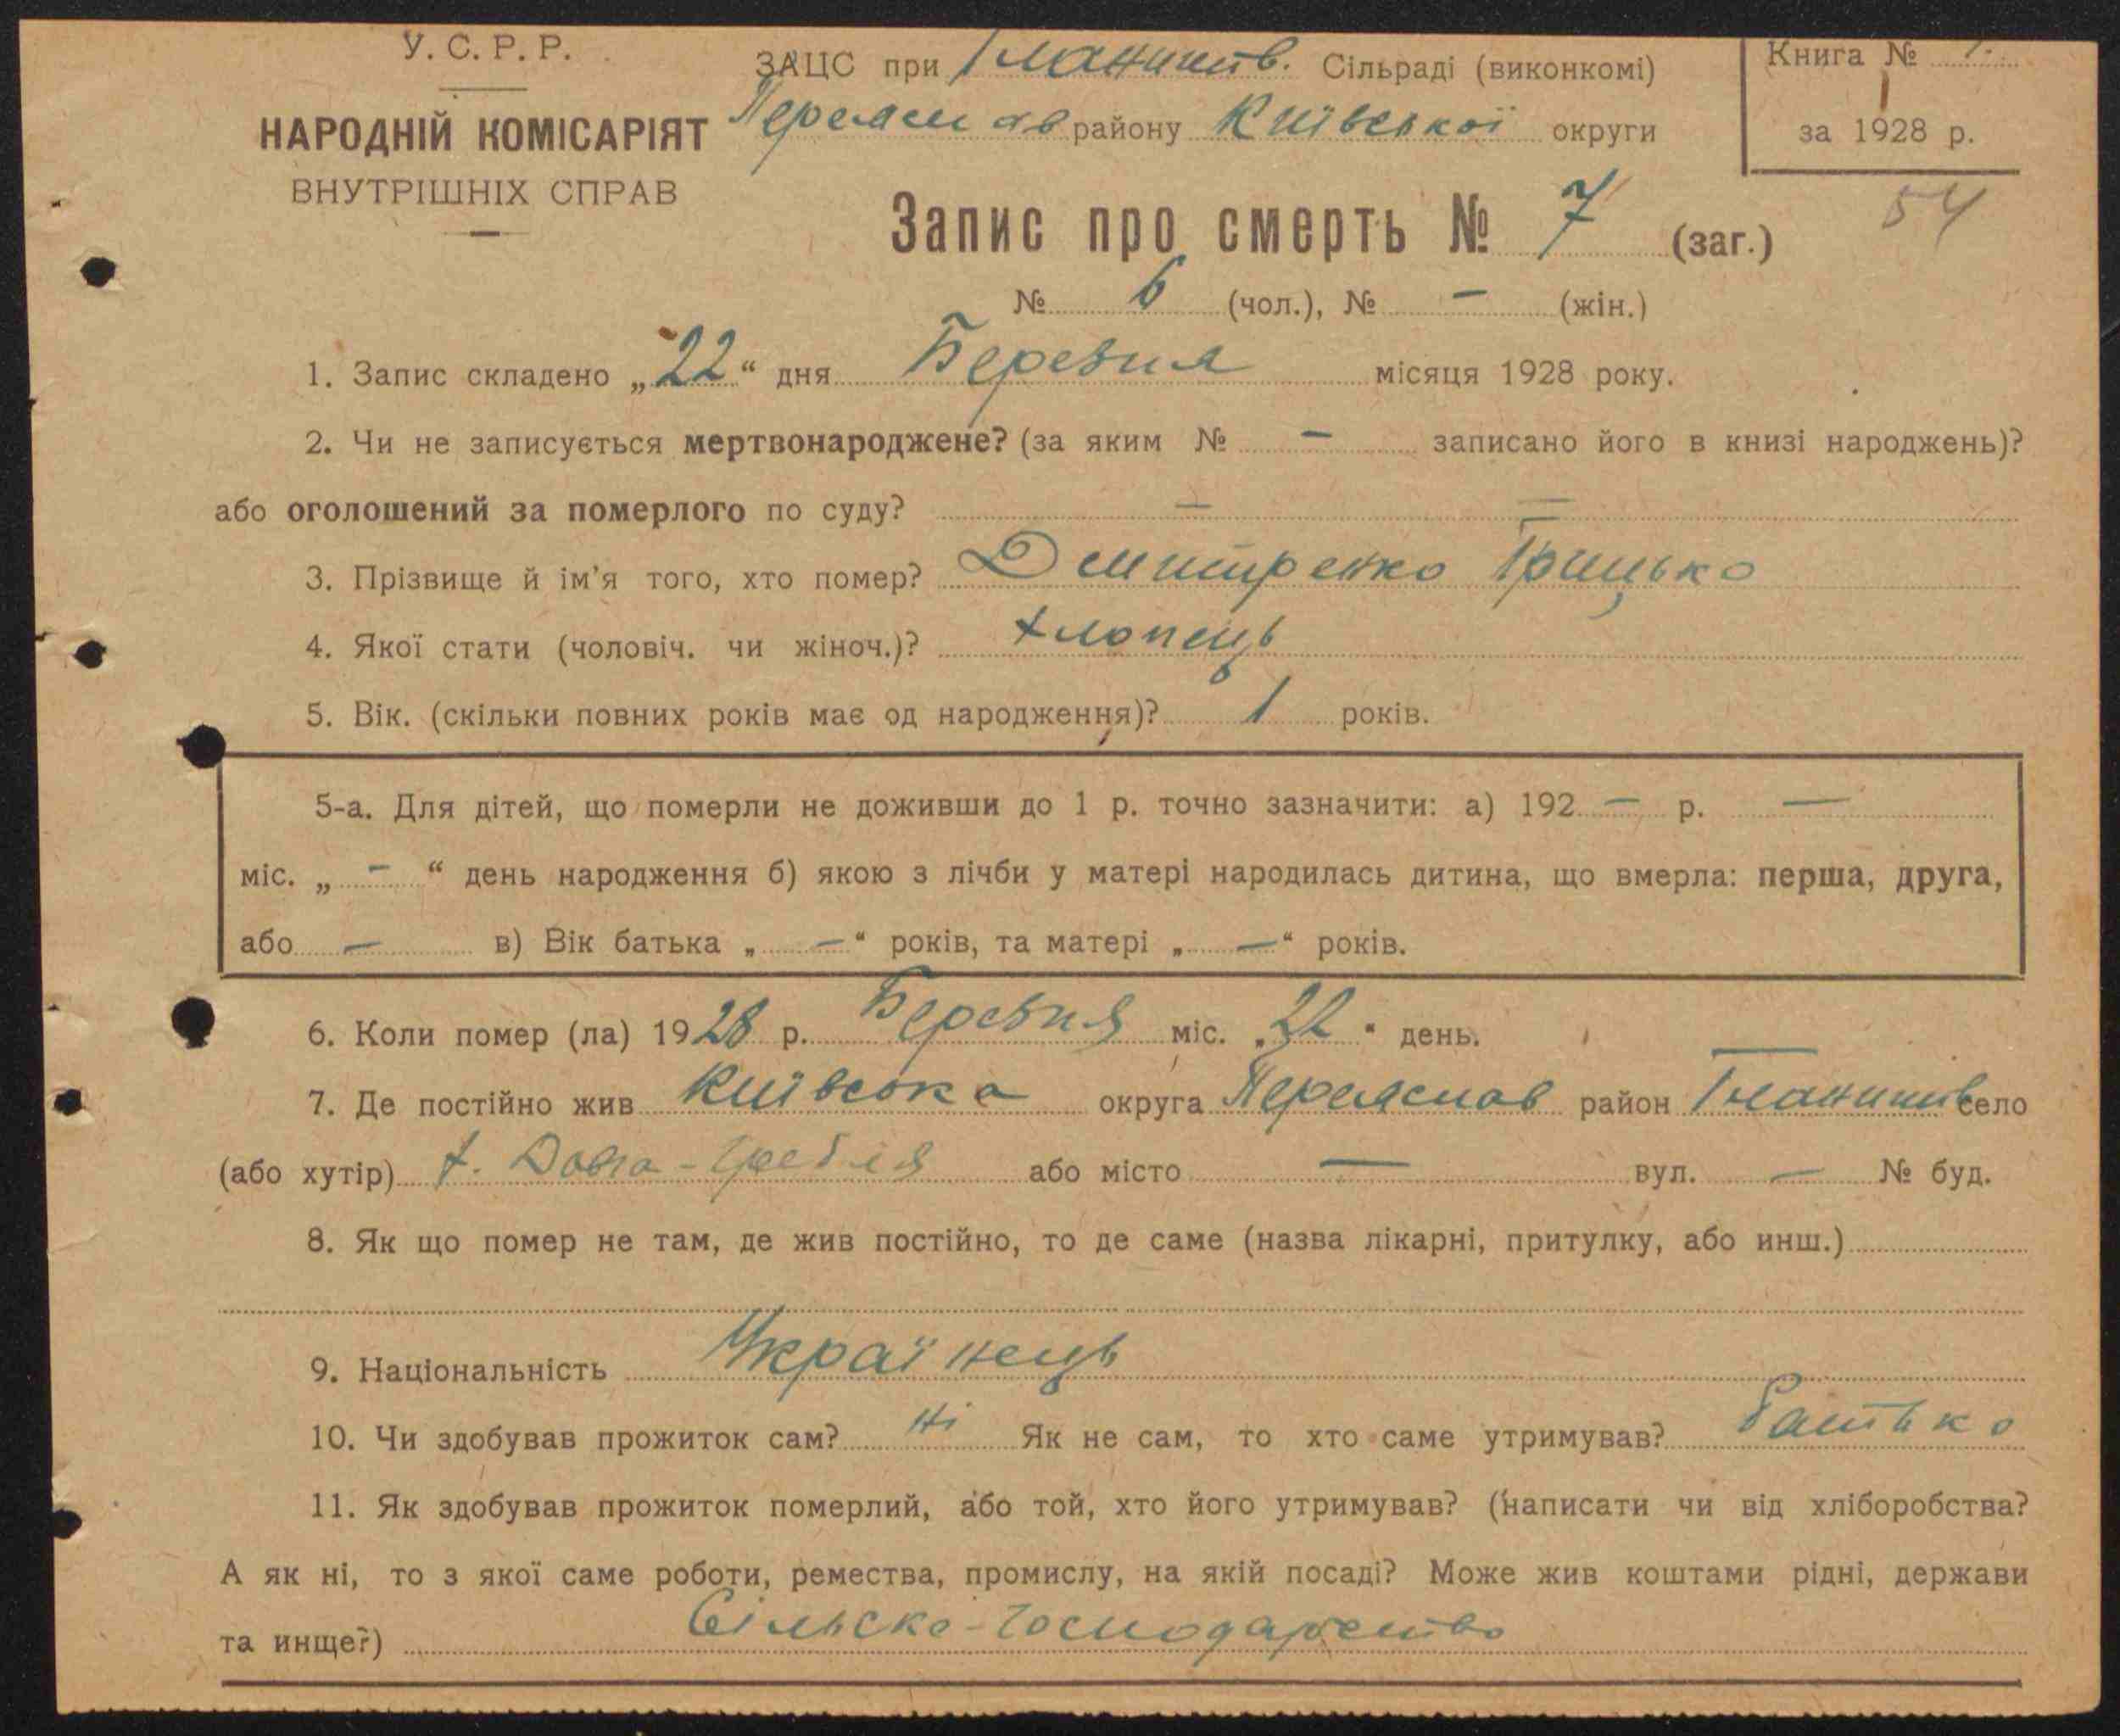 У. С. Р. Р.
НАРОДНІЙ КОМІСАРІЯТ
ВНУТРІШНІХ СПРАВ
ЗАЦС при Гланишів. Сільраді (виконкомі)
Переяслав району Київської округи
Книга №
за 1928 р.
54
Запис про смерть № 7 (заг.)
№ 6 (чол.), № — (жін.)
1. Запис складено „22“ дня Березня місяця 1928 року.
2. Чи не записується мертвонароджене? (за яким № — записано його в книзі народжень)?
або оголошений за померлого по суду? — —
3. Прізвище й ім'я того, хто помер? Дмитренко Грицько
4. Якої стати (чоловіч. чи жіноч.)? хлопець
5. Вік. (скільки повних років має од народження)? 1 років.
5-а. Для дітей, що померли не доживши до 1 р. точно зазначити: а) 192 — р. —
міс. „ — “ день народження б) якою з лічби у матері народилась дитина, що вмерла: перша, друга,
або — в) Вік батька „ — “ років, та матері „ — “ років.
6. Коли помер (ла) 1928 р. Березня міс. „22“ день.
7. Де постійно жив Київська округа Переяслав район Гланишів село
(або хутір) х. Довга-Гребля або місто — вул. — № буд.
8. Як що помер не там, де жив постійно, то де саме (назва лікарні, притулку, або инш.)
9. Національність Українець
10. Чи здобував прожиток сам? ні Як не сам, то хто саме утримував? батько
11. Як здобував прожиток померлий, або той, хто його утримував? (написати чи від хліборобства?
А як ні, то з якої саме роботи, ремества, промислу, на якій посаді? Може жив коштами рідні, держави
та инще?) Сільско-господарство